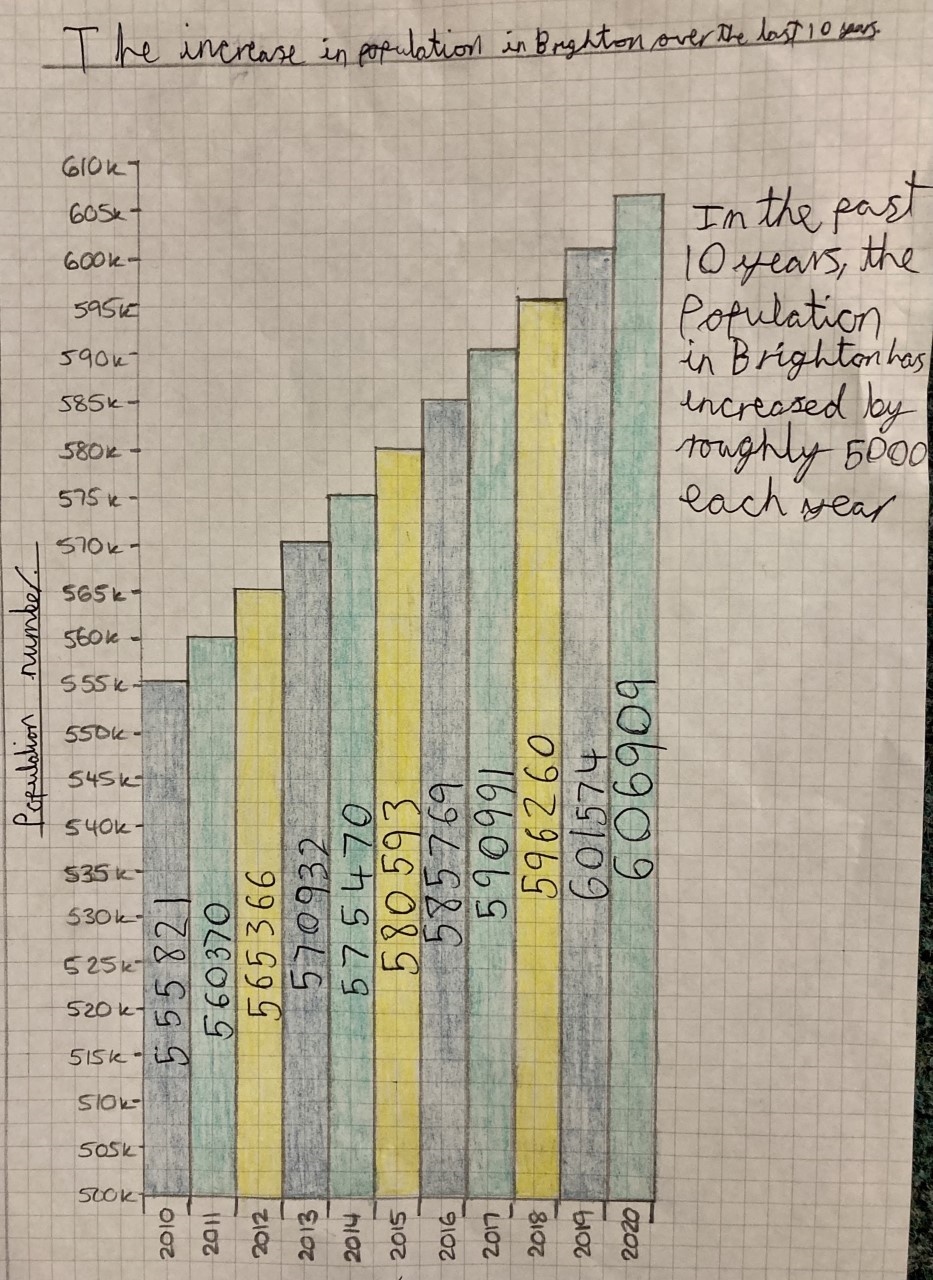 The increase in population in Brighton over the last 10 years.
610k
605k
600k
595k
590k
585k
580k
575k
570k
565k
560k
555k
550k
545k
540k
535k
530k
525k
520k
515k
510k
505k
500k
Population number.
555821
560370
565366
570932
575470
580593
585769
590991
596260
601574
606909
2010
2011
2012
2013
2014
2015
2016
2017
2018
2019
2020
In the past
10 years, the
Population
in Brighton has
increased by
roughly 5000
each year